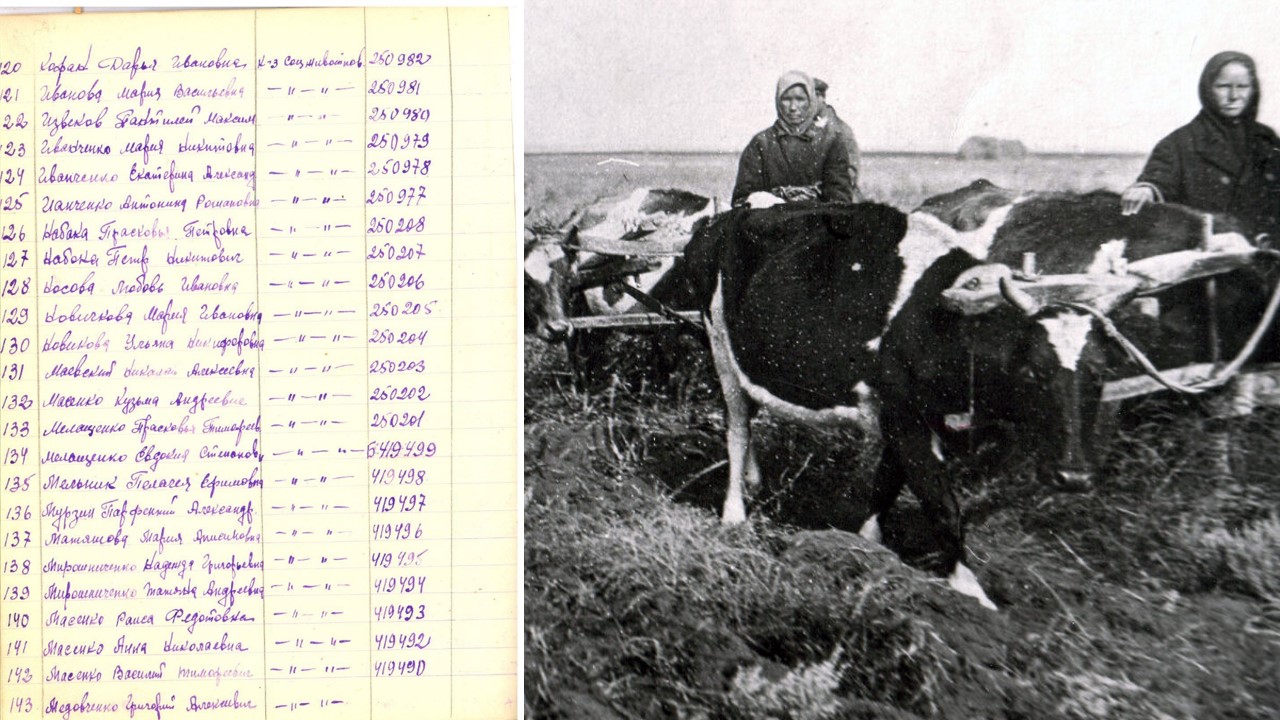 120 Кофан Дарья Ивановна к-з Соцживотнов. 250982
121 Иванова Мария Васильевна — " — " — 250981
122 Извеков Пантилей Максим — " — " — 250980
123 Иванченко Мария Никитовна — " — " — 250979
124 Иванченко Екатерина Александ — " — " — 250978
125 Ианченко Антонина Романовна — " — " — 250977
126 Набака Прасковья Петровна — " — " — 250208
127 Набока Петр Никитович — " — " — 250207
128 Носова Любовь Ивановна — " — " — 250206
129 Новичкова Мария Ивановна — " — " — 250205
130 Новикова Ульяна Никифоровна — " — " — 250204
131 Маевский Николай Алексеевич — " — " — 250203
132 Масенко Кузьма Андреевич — " — " — 250202
133 Мелащенко Прасковья Тимофеев — " — " — 250201
134 Мелащенко Евдокия Степановн — " — " — 419499
135 Мельник Пелагея Ефимовна — " — " — 419498
136 Мурзин Парфентий Александр. — " — " — 419497
137 Матяшова Мария — " — " — 419496
138 Мирошниченко Надежда Григорьевна — " — " — 419495
139 Мирошниченко Татьяна Андреевна — " — " — 419494
140 Масенко Раиса Федотовна — " — " — 419493
141 Масенко Анна Николаевна — " — " — 419492
142 Масенко Василий Тимофеевич — " — " — 419490
143 Медовченко Григорий Алексеевич — " — " —